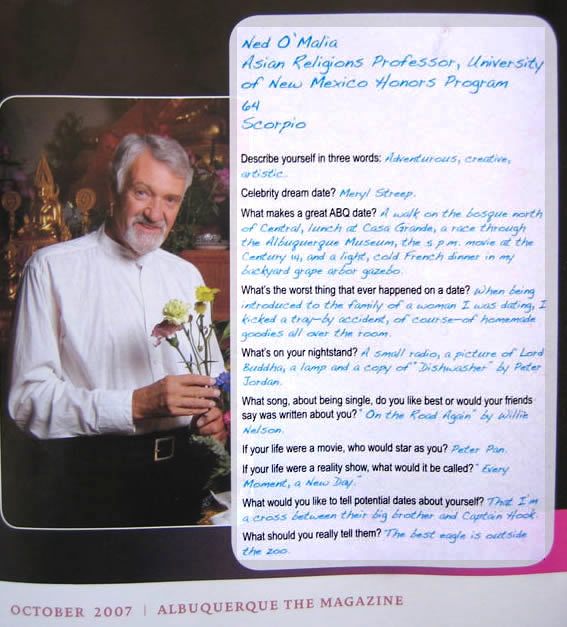 Ned O'Malia
Asian Religions Professor, University
of New Mexico Honors Program
64
Scorpio
Describe yourself in three words: Adventurous, creative,
artistic.
Celebrity dream date? Meryl Streep.
What makes a great ABQ date? A walk on the bosque north
of Central, lunch at Casa Grande, a race through
the Albuquerque Museum, the 5 p.m. movie at the
Century 14, and a light, cold French dinner in my
backyard grape arbor gazebo.
What's the worst thing that ever happened on a date? When being
introduced to the family of a woman I was dating, I
kicked a tray—by accident, of course—of homemade
goodies all over the room.
What's on your nightstand? A small radio, a picture of Lord
Buddha, a lamp and a copy of "Dishwasher" by Peter
Jordan.
What song, about being single, do you like best or would your friends
say was written about you? "On the Road Again" by Willie
Nelson.
If your life were a movie, who would star as you? Peter Pan.
If your life were a reality show, what would it be called? "Every
Moment, a New Day."
What would you like to tell potential dates about yourself? That I'm
a cross between their big brother and Captain Hook.
What should you really tell them? The best eagle is outside
the zoo.
OCTOBER 2007 | ALBUQUERQUE THE MAGAZINE